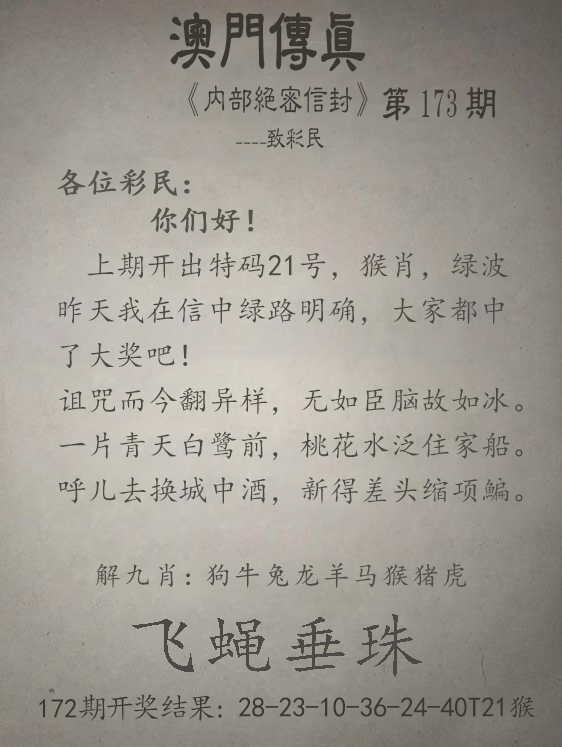 澳門傳真
《内部絕密信封》第173期
----致彩民
各位彩民：
你们好！
上期开出特码21号，猴肖，绿波
昨天我在信中绿路明确，大家都中
了大奖吧！
诅咒而今翻异样，无如臣脑故如冰。
一片青天白鹭前，桃花水泛住家船。
呼儿去换城中酒，新得差头缩项鳊。
解九肖：狗牛兔龙羊马猴猪虎
飞蝇垂珠
172期开奖结果：28-23-10-36-24-40T21猴